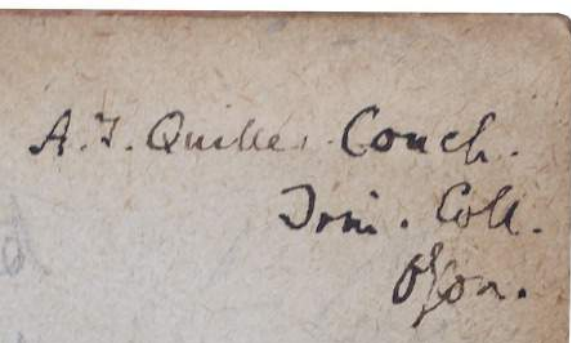 A. T. Quiller Couch.
Trin. Coll.
Oxon.